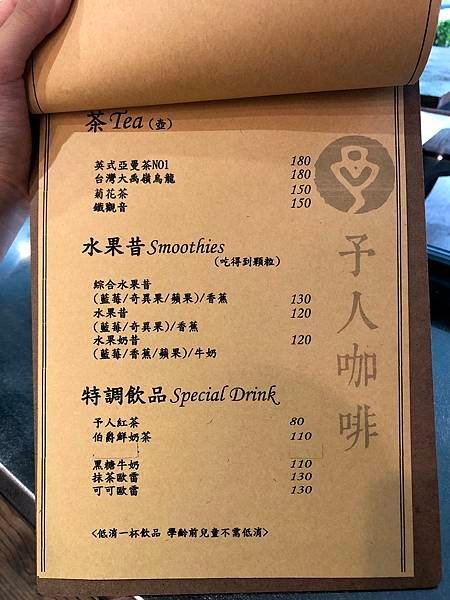 茶 Tea (壺)
英式亞曼茶NO1 180
台灣大禹嶺烏龍 180
菊花茶 150
鐵觀音 150
水果昔 Smoothies
(吃得到顆粒)
綜合水果昔
(藍莓/奇異果/蘋果)/香蕉 130
水果昔 120
(藍莓/奇異果)/香蕉
水果奶昔 120
(藍莓/香蕉/蘋果)/牛奶
特調飲品 Special Drink
予人紅茶 80
伯爵鮮奶茶 110
黑糖牛奶 110
抹茶歐蕾 130
可可歐蕾 130
<低消一杯飲品 學齡前兒童不需低消>
予人咖啡